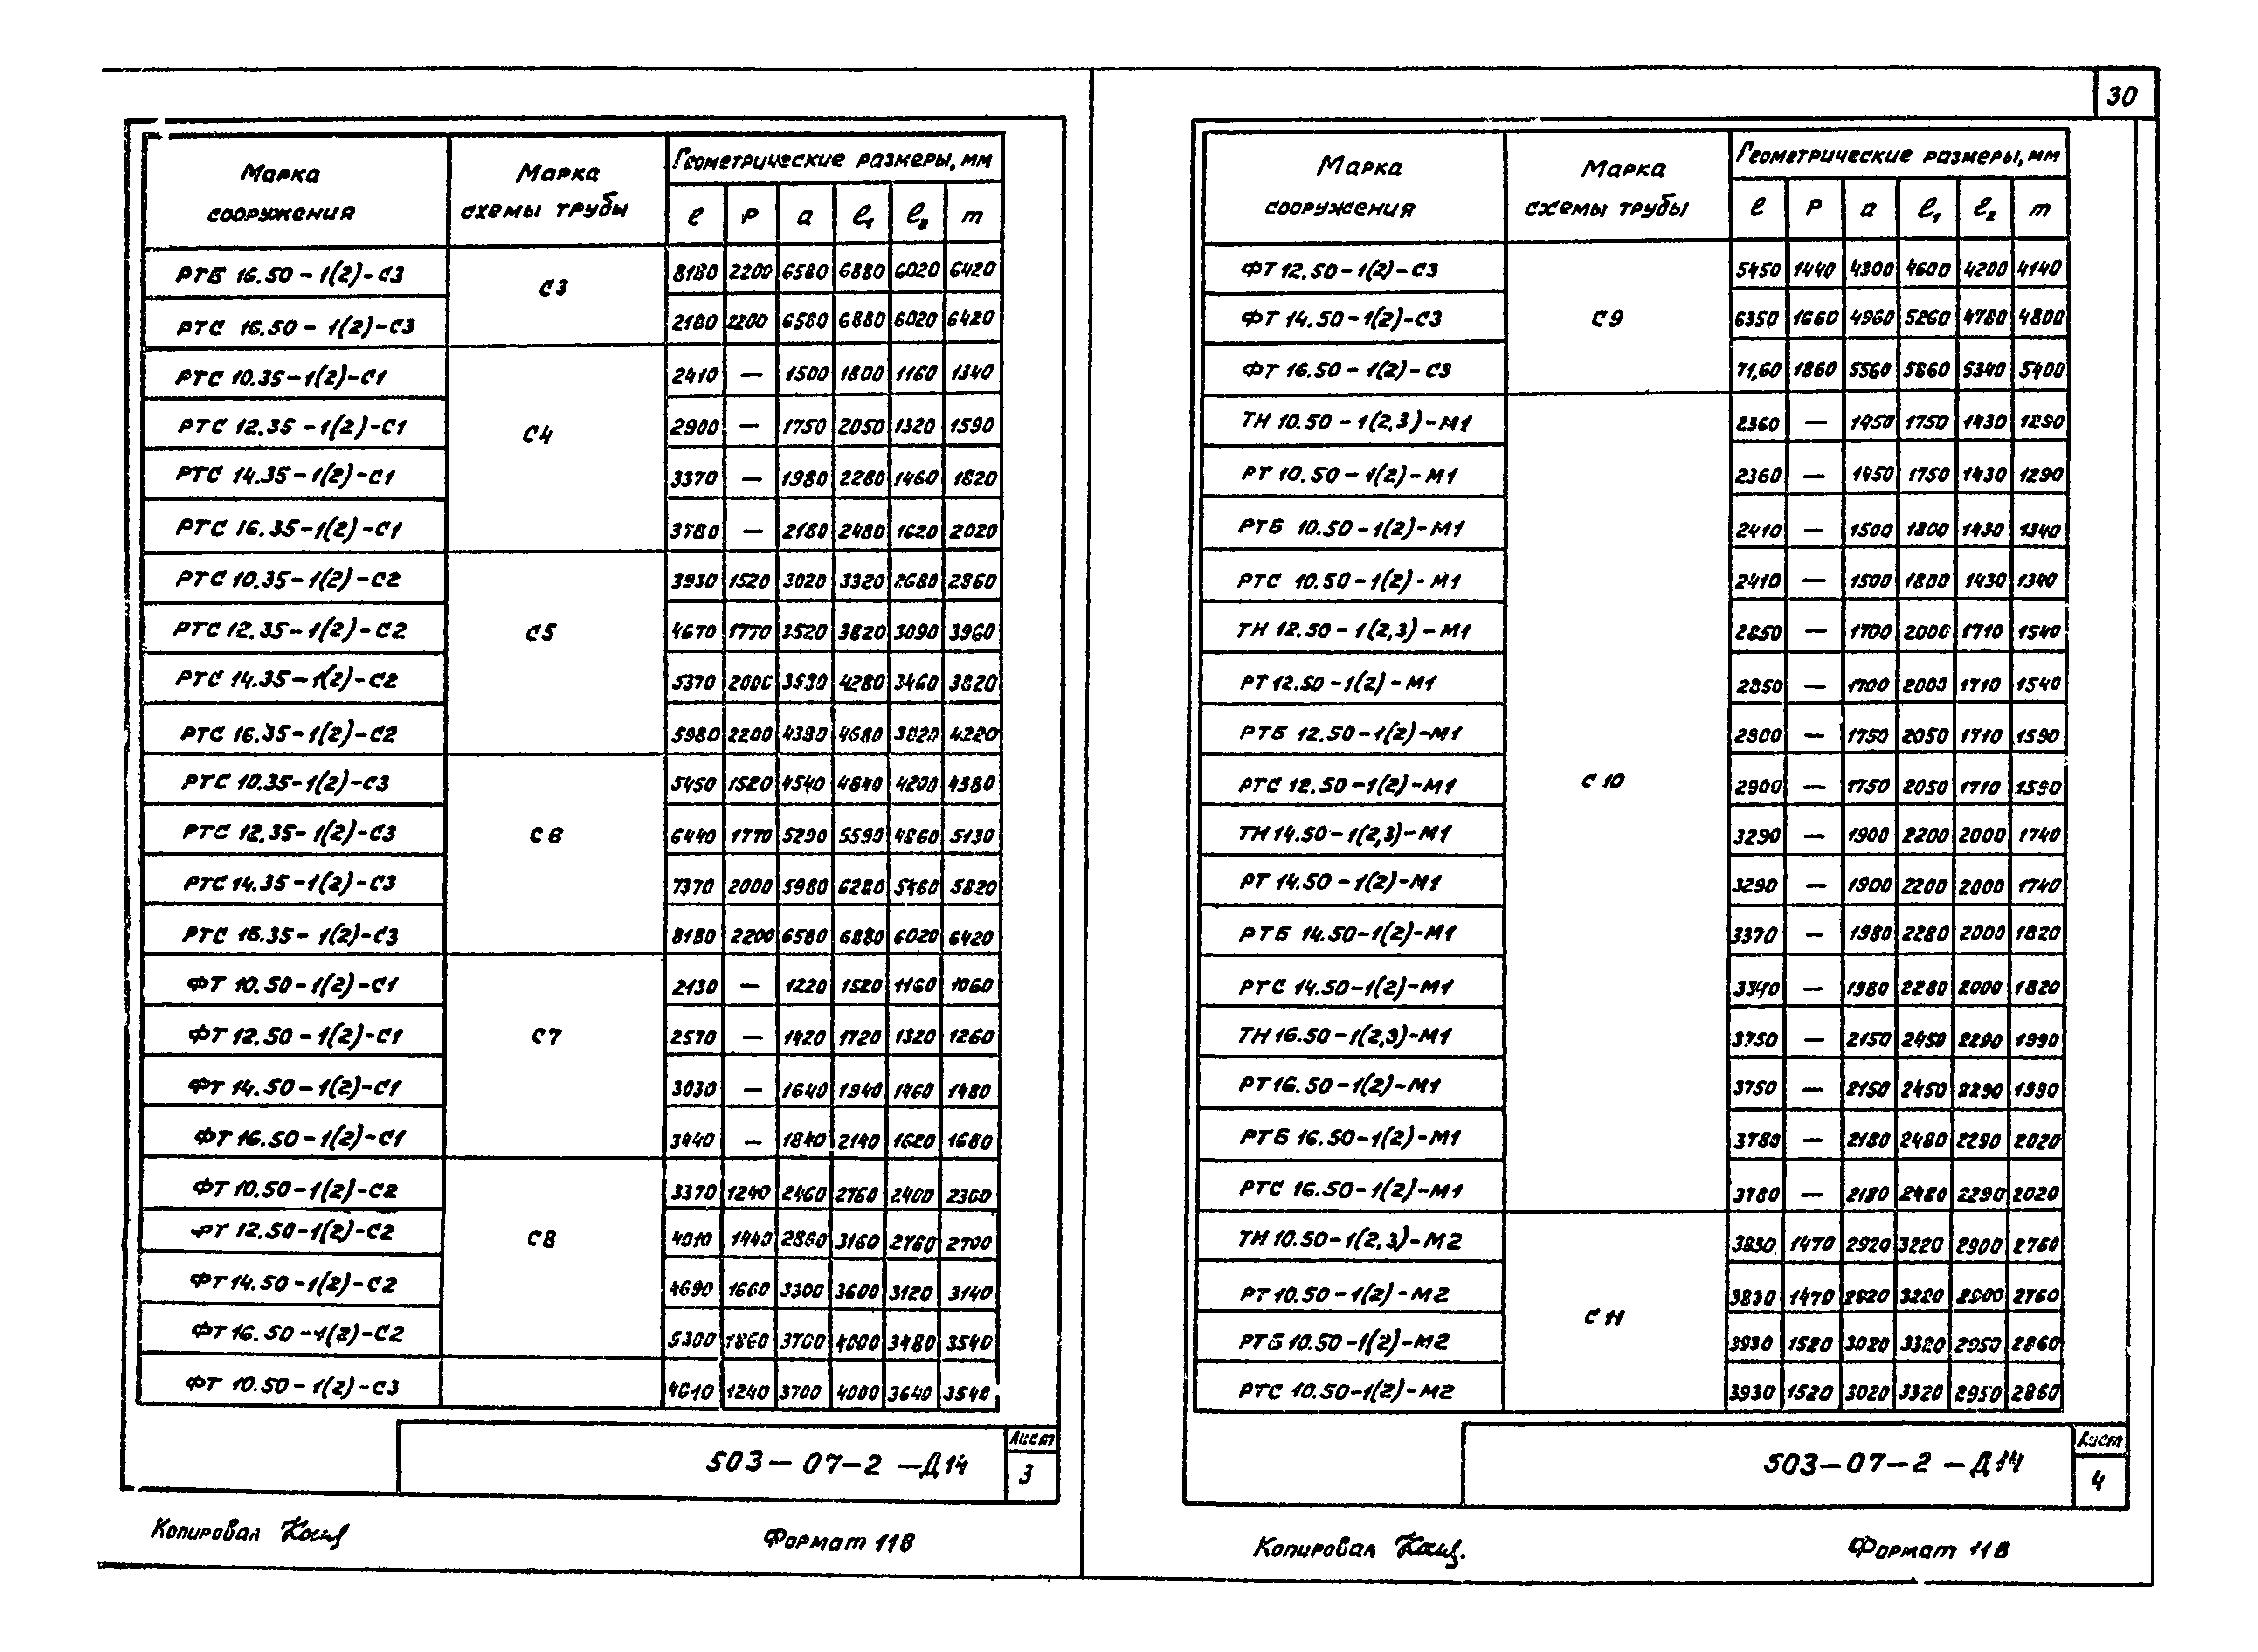 30
Марка сооружения Марка схемы трубы Геометрические размеры, мм
ℓ P a ℓ₁ ℓ₂ m
РТБ 16.50-1(2)-С3 С3 8180 2200 6580 6880 6020 6420
РТС 16.50-1(2)-С3 2180 2200 6580 6880 6020 6420
РТС 10.35-1(2)-С1 С4 2410 — 1500 1800 1160 1340
РТС 12.35-1(2)-С1 2900 — 1750 2050 1320 1590
РТС 14.35-1(2)-С1 3370 — 1980 2280 1460 1820
РТС 16.35-1(2)-С1 3780 — 2180 2480 1620 2020
РТС 10.35-1(2)-С2 С5 3930 1520 3020 3320 2680 2860
РТС 12.35-1(2)-С2 4670 1770 3520 3820 3090 3960
РТС 14.35-1(2)-С2 5370 2000 3980 4280 3460 3820
РТС 16.35-1(2)-С2 5980 2200 4380 4680 3820 4220
РТС 10.35-1(2)-С3 С6 5450 1520 4540 4840 4200 4380
РТС 12.35-1(2)-С3 6440 1770 5290 5590 4860 5130
РТС 14.35-1(2)-С3 7370 2000 5980 6280 5460 5820
РТС 16.35-1(2)-С3 8180 2200 6580 6880 6020 6420
ФТ 10.50-1(2)-С1 С7 2130 — 1220 1520 1160 1060
ФТ 12.50-1(2)-С1 2570 — 1420 1720 1320 1260
ФТ 14.50-1(2)-С1 3030 — 1640 1940 1460 1480
ФТ 16.50-1(2)-С1 3440 — 1840 2140 1620 1680
ФТ 10.50-1(2)-С2 С8 3370 1240 2460 2760 2400 2300
ФТ 12.50-1(2)-С2 4010 1440 2860 3160 2760 2700
ФТ 14.50-1(2)-С2 4690 1660 3300 3600 3120 3140
ФТ 16.50-1(2)-С2 5300 1860 3700 4000 3480 3540
ФТ 10.50-1(2)-С3 4610 1240 3700 4000 3640 3540
503-07-2-Д14 Лист 3
Копировал
Формат 11В
Марка сооружения Марка схемы трубы Геометрические размеры, мм
ℓ P a ℓ₁ ℓ₂ m
ФТ 12.50-1(2)-С3 С9 5450 1440 4300 4600 4200 4140
ФТ 14.50-1(2)-С3 6350 1660 4960 5260 4780 4800
ФТ 16.50-1(2)-С3 71,60 1860 5560 5860 5340 5400
ТН 10.50-1(2,3)-М1 С10 2360 — 1450 1750 1430 1290
РТ 10.50-1(2)-М1 2360 — 1450 1750 1430 1290
РТБ 10.50-1(2)-М1 2410 — 1500 1800 1430 1340
РТС 10.50-1(2)-М1 2410 — 1500 1800 1430 1340
ТН 12.50-1(2,3)-М1 2850 — 1700 2000 1710 1540
РТ 12.50-1(2)-М1 2850 — 1700 2000 1710 1540
РТБ 12.50-1(2)-М1 2900 — 1750 2050 1710 1590
РТС 12.50-1(2)-М1 2900 — 1750 2050 1710 1590
ТН 14.50-1(2,3)-М1 3290 — 1900 2200 2000 1740
РТ 14.50-1(2)-М1 3290 — 1900 2200 2000 1740
РТБ 14.50-1(2)-М1 3370 — 1980 2280 2000 1820
РТС 14.50-1(2)-М1 3340 — 1980 2280 2000 1820
ТН 16.50-1(2,3)-М1 3750 — 2150 2450 2290 1990
РТ 16.50-1(2)-М1 3750 — 2150 2450 2290 1990
РТБ 16.50-1(2)-М1 3780 — 2180 2480 2290 2020
РТС 16.50-1(2)-М1 3780 — 2180 2480 2290 2020
ТН 10.50-1(2,3)-М2 С11 3830 1470 2920 3220 2900 2760
РТ 10.50-1(2)-М2 3830 1470 2920 3220 2900 2760
РТБ 10.50-1(2)-М2 3930 1520 3020 3320 2950 2860
РТС 10.50-1(2)-М2 3930 1520 3020 3320 2950 2860
503-07-2-Д14 Лист 4
Копировал
Формат 11В